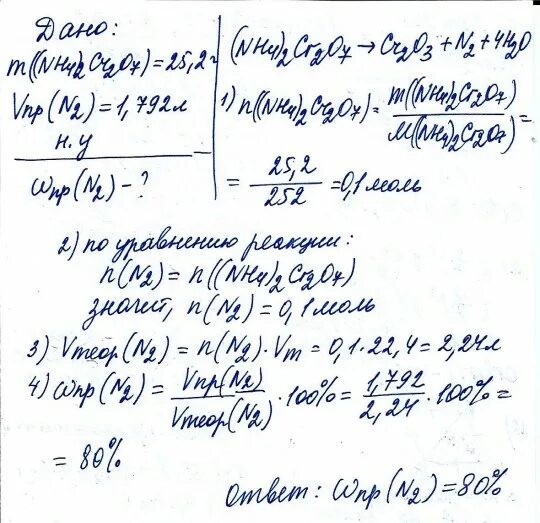 Дано:
m((NH4)2Cr2O7)=25,2г
Vпр(N2)=1,792л
н.у
ωпр(N2)-?
(NH4)2Cr2O7→Cr2O3+N2+4H2O
1) n((NH4)2Cr2O7)= m((NH4)2Cr2O7)/M((NH4)2Cr2O7) =
= 25,2/252 =0,1моль
2) по уравнению реакции:
n(N2)=n((NH4)2Cr2O7)
значит, n(N2)=0,1моль
3) Vтеор(N2)=n(N2)·Vm=0,1·22,4=2,24л
4) ωпр(N2)= Vпр(N2)/Vтеор(N2) ·100%= 1,792/2,24 ·100%=
= 80%
ответ: ωпр(N2)=80%